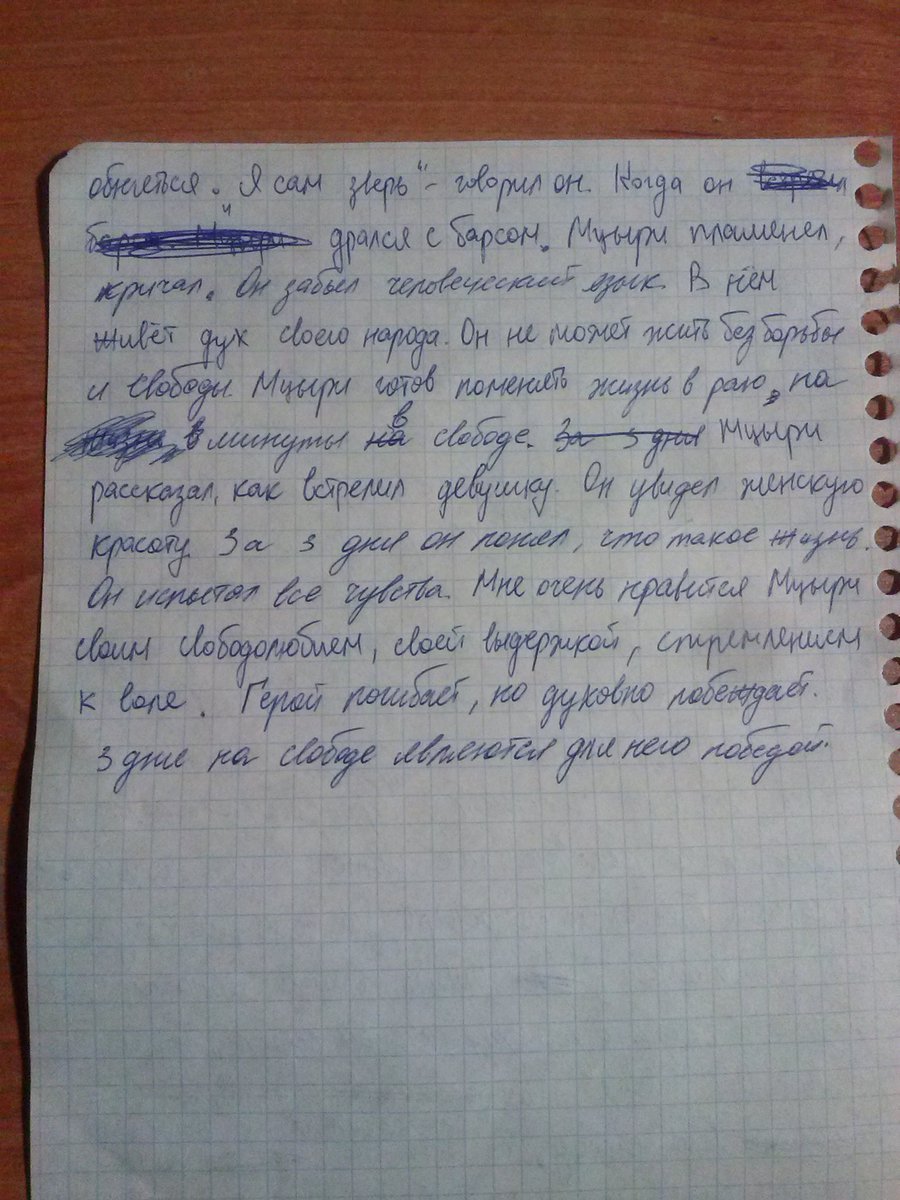 обняться. Я сам зверь" - говорил он. Когда он
" дрался с барсом. Мцыри пламенел,
кричал. Он забыл человеческий язык. В нём
живёт дух своего народа. Он не может жить без борьбы
и свободы. Мцыри готов поменять жизнь в раю, на
минуты в свободе. За 3 дня Мцыри
рассказал, как встретил девушку. Он увидел женскую
красоту. За 3 дня он понял, что такое жизнь.
Он испытал все чувства. Мне очень нравится Мцыри
своим свободолюбием, своей выдержкой, стремлением
к воле. Герой погибает, но духовно побеждает.
3 дня на свободе являются для него победой.